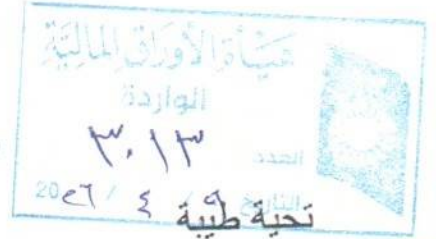 هيأة الأوراق المالية
الواردة
العدد ٣٠١٣
التاريخ ٩ / ٤ / 20٢٦
تحية طيبة